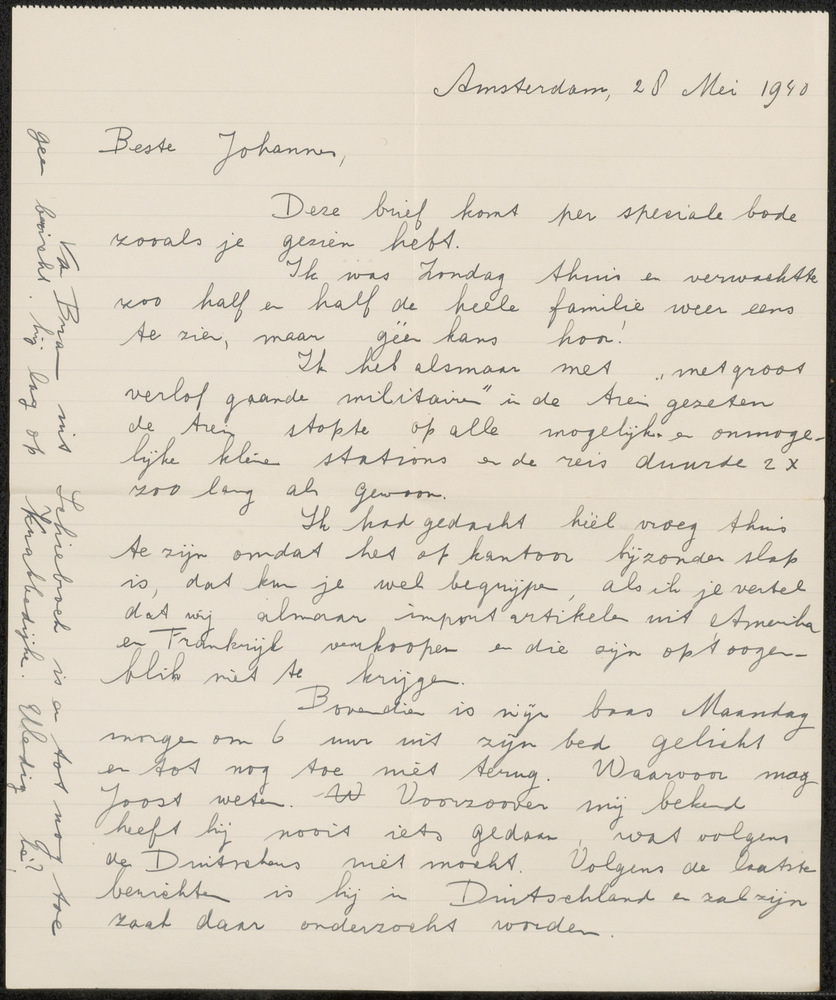 Amsterdam, 28 Mei 1940
Beste Johannes,
Deze brief komt per speciale bode
zooals je gezien hebt.
Ik was Zondag thuis en verwachtte
zoo half en half de heele familie weer eens
te zien, maar géén kans hoor!
Ik heb alsmaar met „met groot
verlof gaande militairen" in de trein gezeten
de trein stopte op alle mogelijke en onmoge-
lijke kleine stations en de reis duurde 2 x
zoo lang als gewoon.
Ik had gedacht héél vroeg thuis
te zijn omdat het op kantoor bijzonder slap
is, dat kun je wel begrijpen, als ik je vertel
dat wij almaar import artikelen uit Amerika
en Frankrijk verkoopen en die zijn op 't oogen-
blik niet te krijgen.
Bovendien is mijn baas Maandag
morgen om 6 uur uit zijn bed gelicht
en tot nog toe niet terug. Waarvoor mag
Joost weten. Voorzoover mij bekend
heeft hij nooit iets gedaan, wat volgens
de Duitschers niet mocht. Volgens de laatste
berichten is hij in Duitschland en zal zijn
zaak daar onderzocht worden.
Van Bram uit Schiebroek is er tot nog toe
geen bericht. hij lag op Knabbedijke. Ellendig hè?